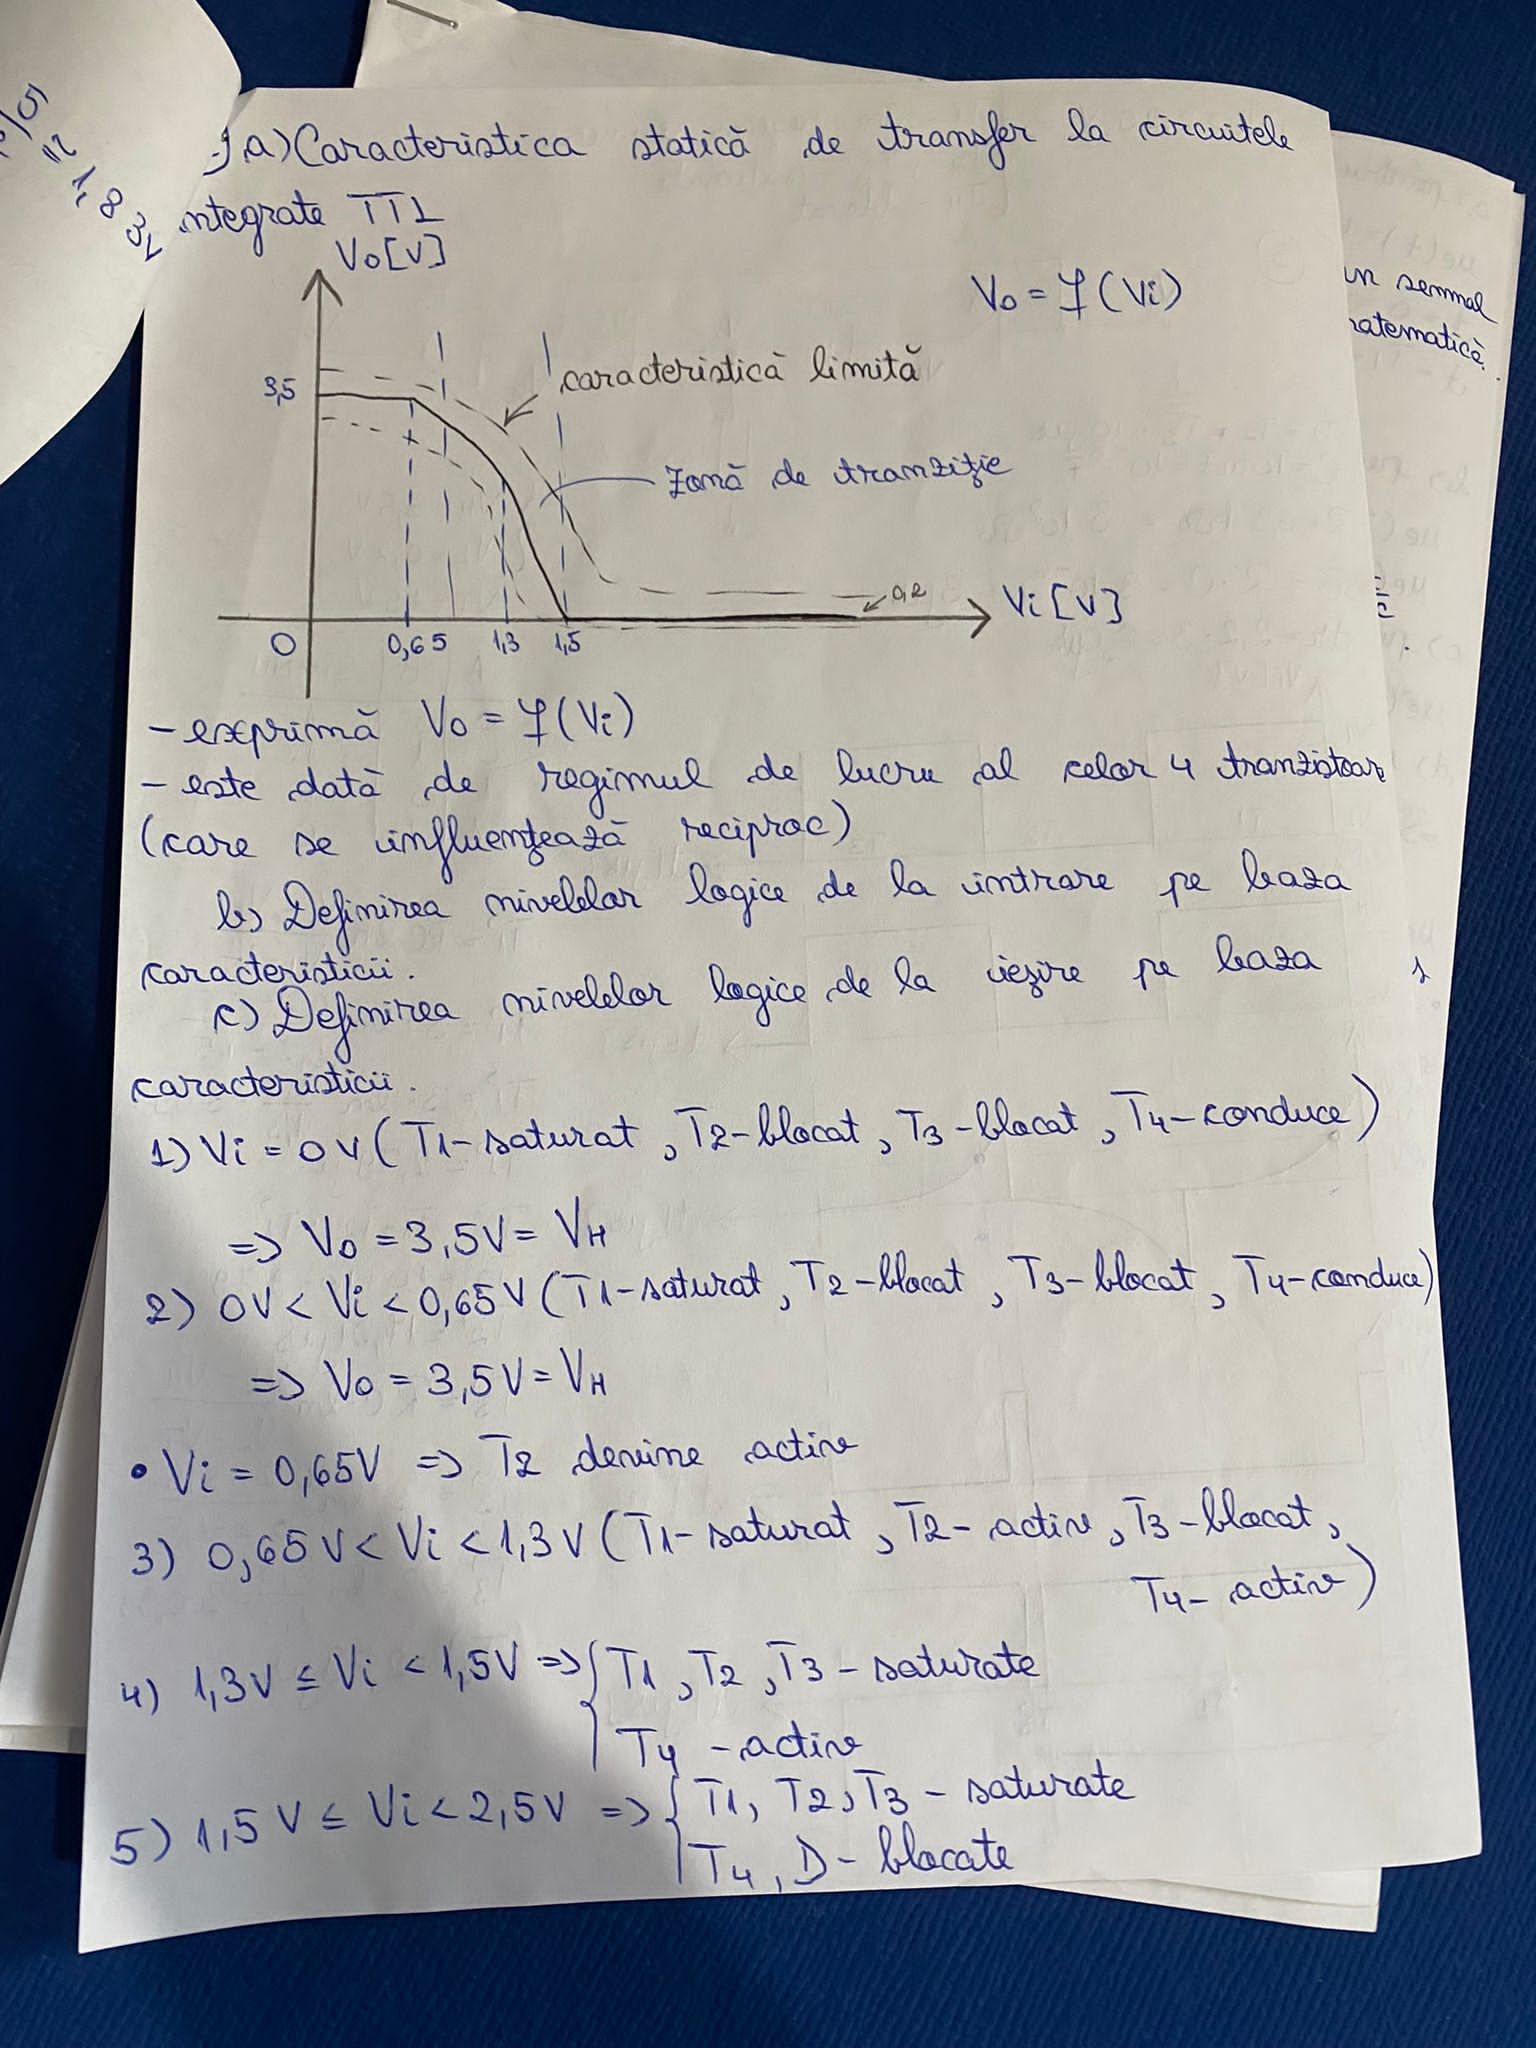 a) Caracteristica statică de transfer la circuitele
integrate TTL
Vo[V]
Vo = f(Vi)
3,5
caracteristică limită
zonă de tranziție
0,2
Vi[V]
O 0,65 1,3 1,5
- exprimă Vo = f(Vi)
- este dată de regimul de lucru al celor 4 tranzistoare
(care se influențează reciproc)
b) Definirea nivelelor logice de la intrare pe baza
caracteristicii.
c) Definirea nivelelor logice de la ieșire pe baza
caracteristicii.
1) Vi = 0V (T1-saturat, T2-blocat, T3-blocat, T4-conduce)
=> Vo = 3,5V = VH
2) 0V < Vi < 0,65V (T1-saturat, T2-blocat, T3-blocat, T4-conduce)
=> Vo = 3,5V = VH
• Vi = 0,65V => T2 devine activ
3) 0,65V < Vi < 1,3V (T1-saturat, T2-activ, T3-blocat,
T4-activ)
4) 1,3V ≤ Vi < 1,5V => { T1, T2, T3 - saturate
T4 - activ
5) 1,5V ≤ Vi < 2,5V => { T1, T2, T3 - saturate
T4, D - blocate
un semnal
1,83V